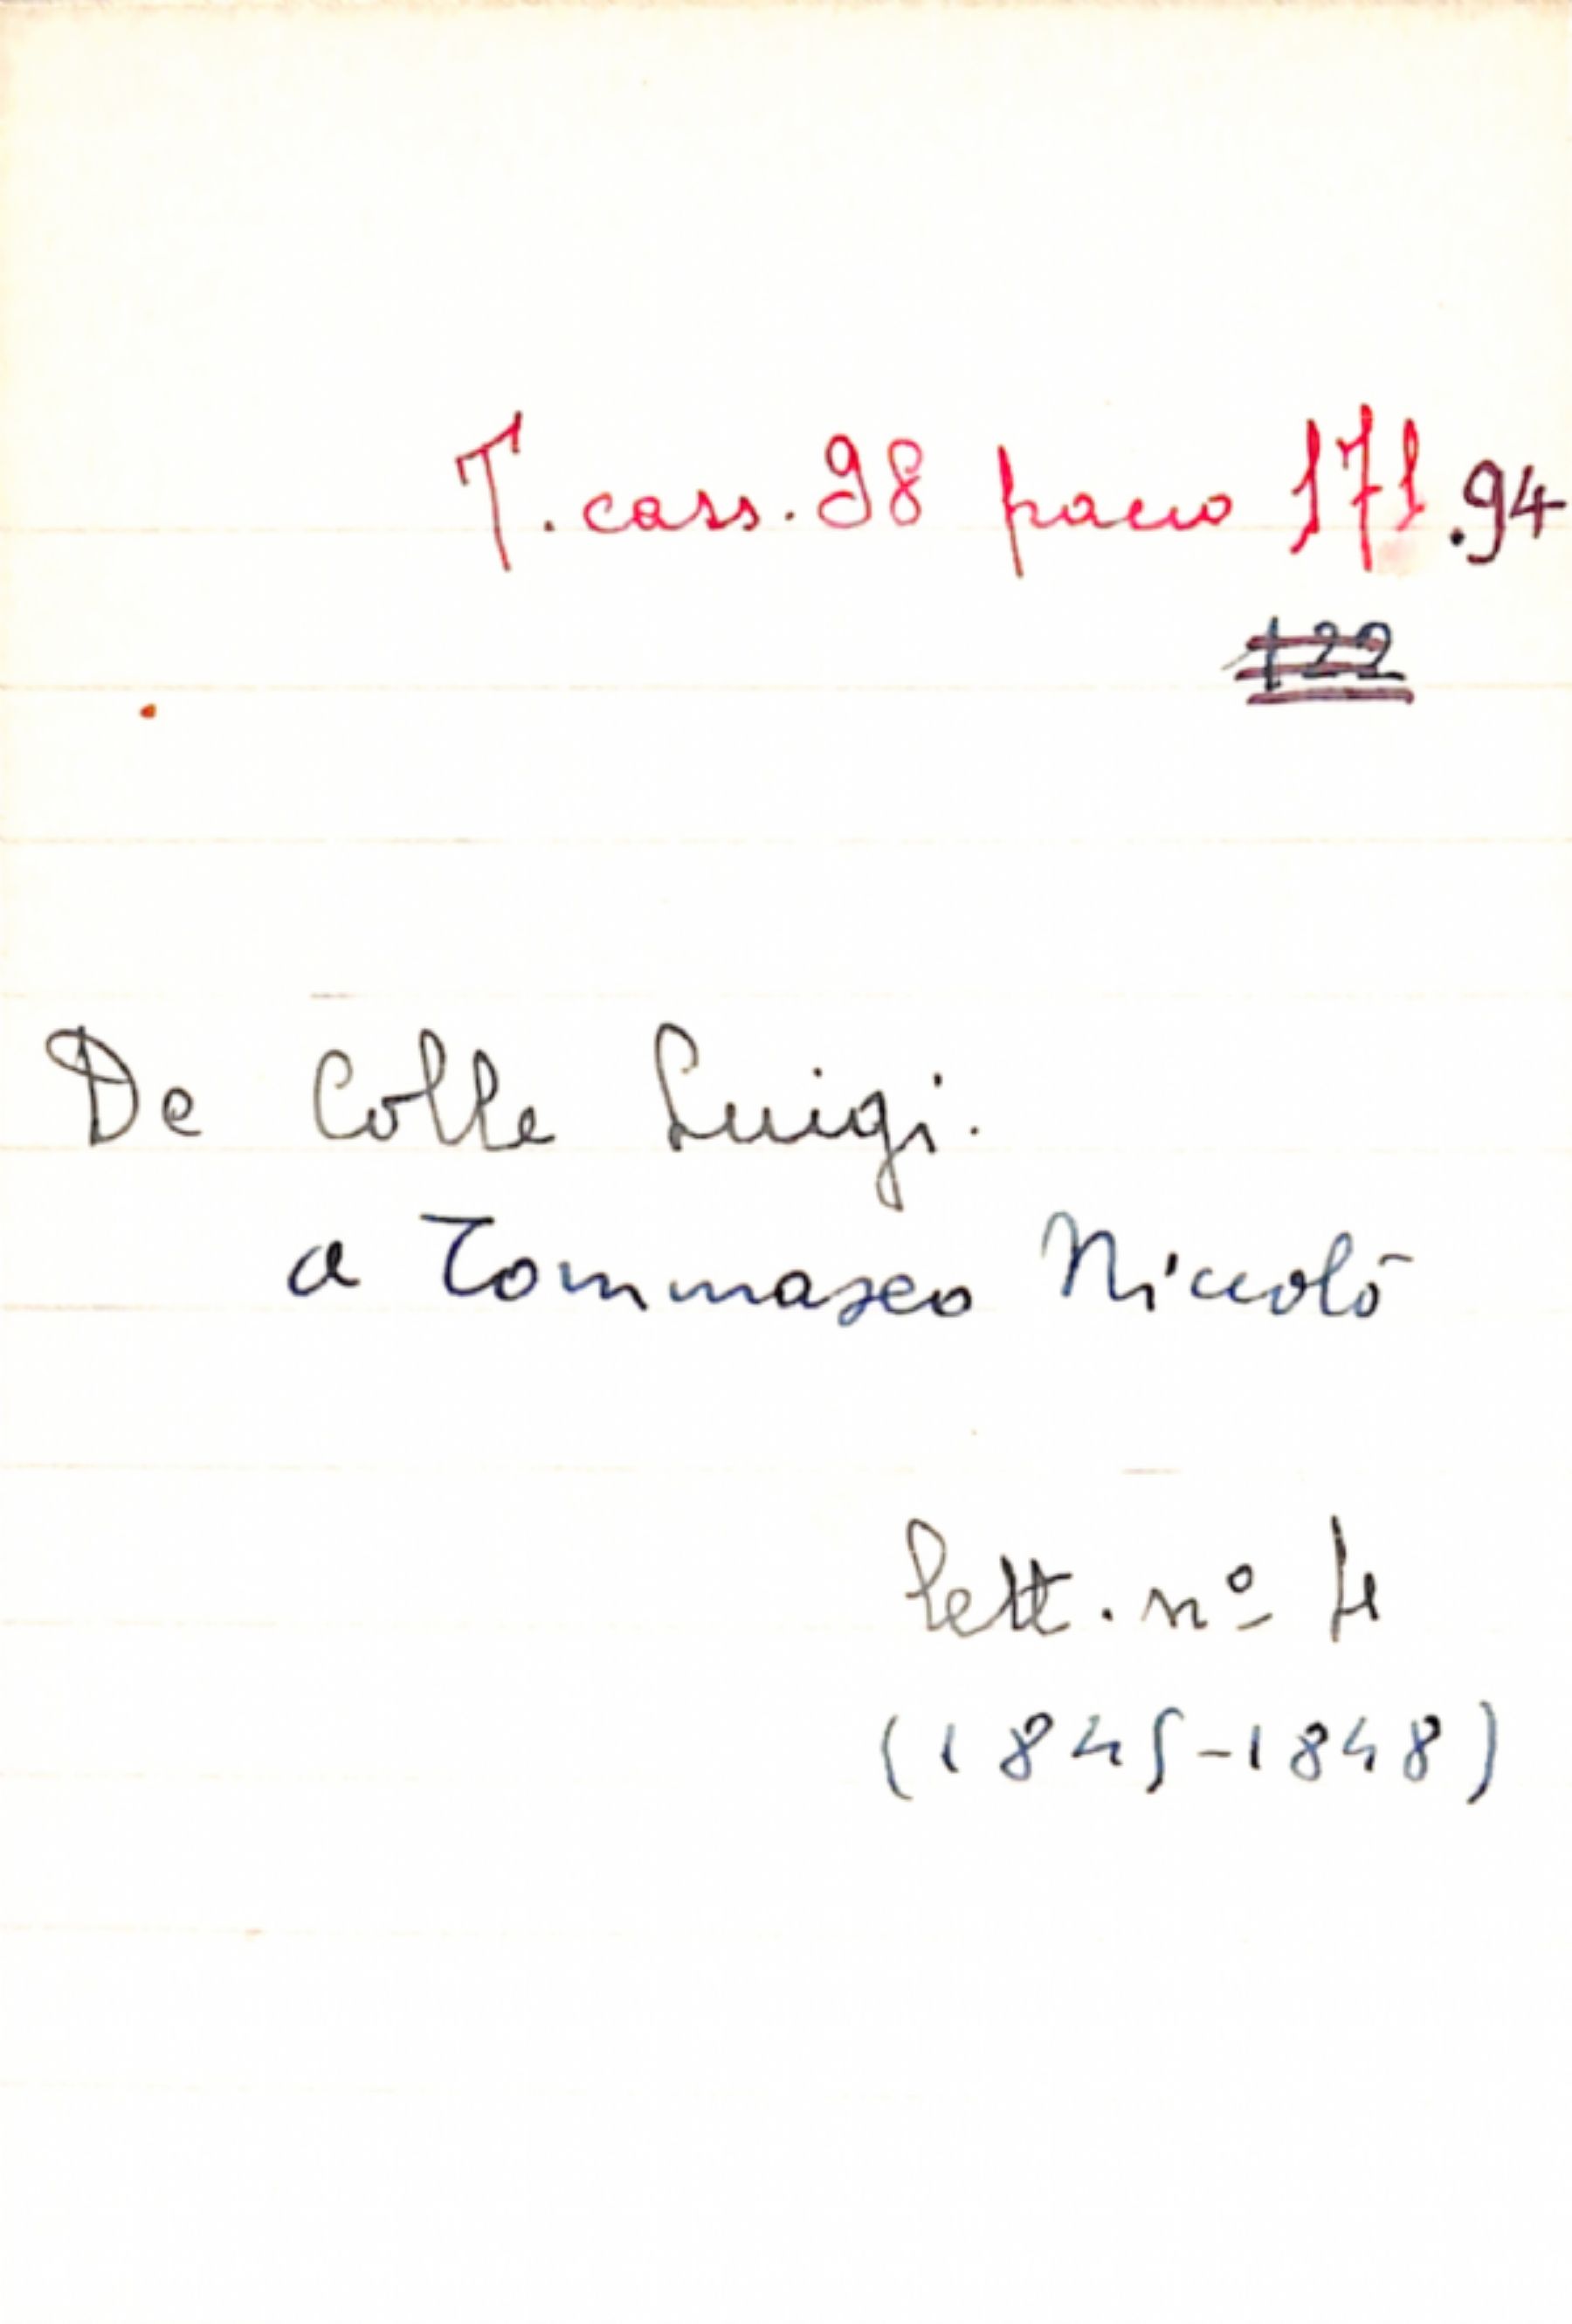 T. cass. 98 pacco 171.94
122
De Colle Luigi.
a Tommaseo Niccolò
lett. nº 4
(1845-1848)